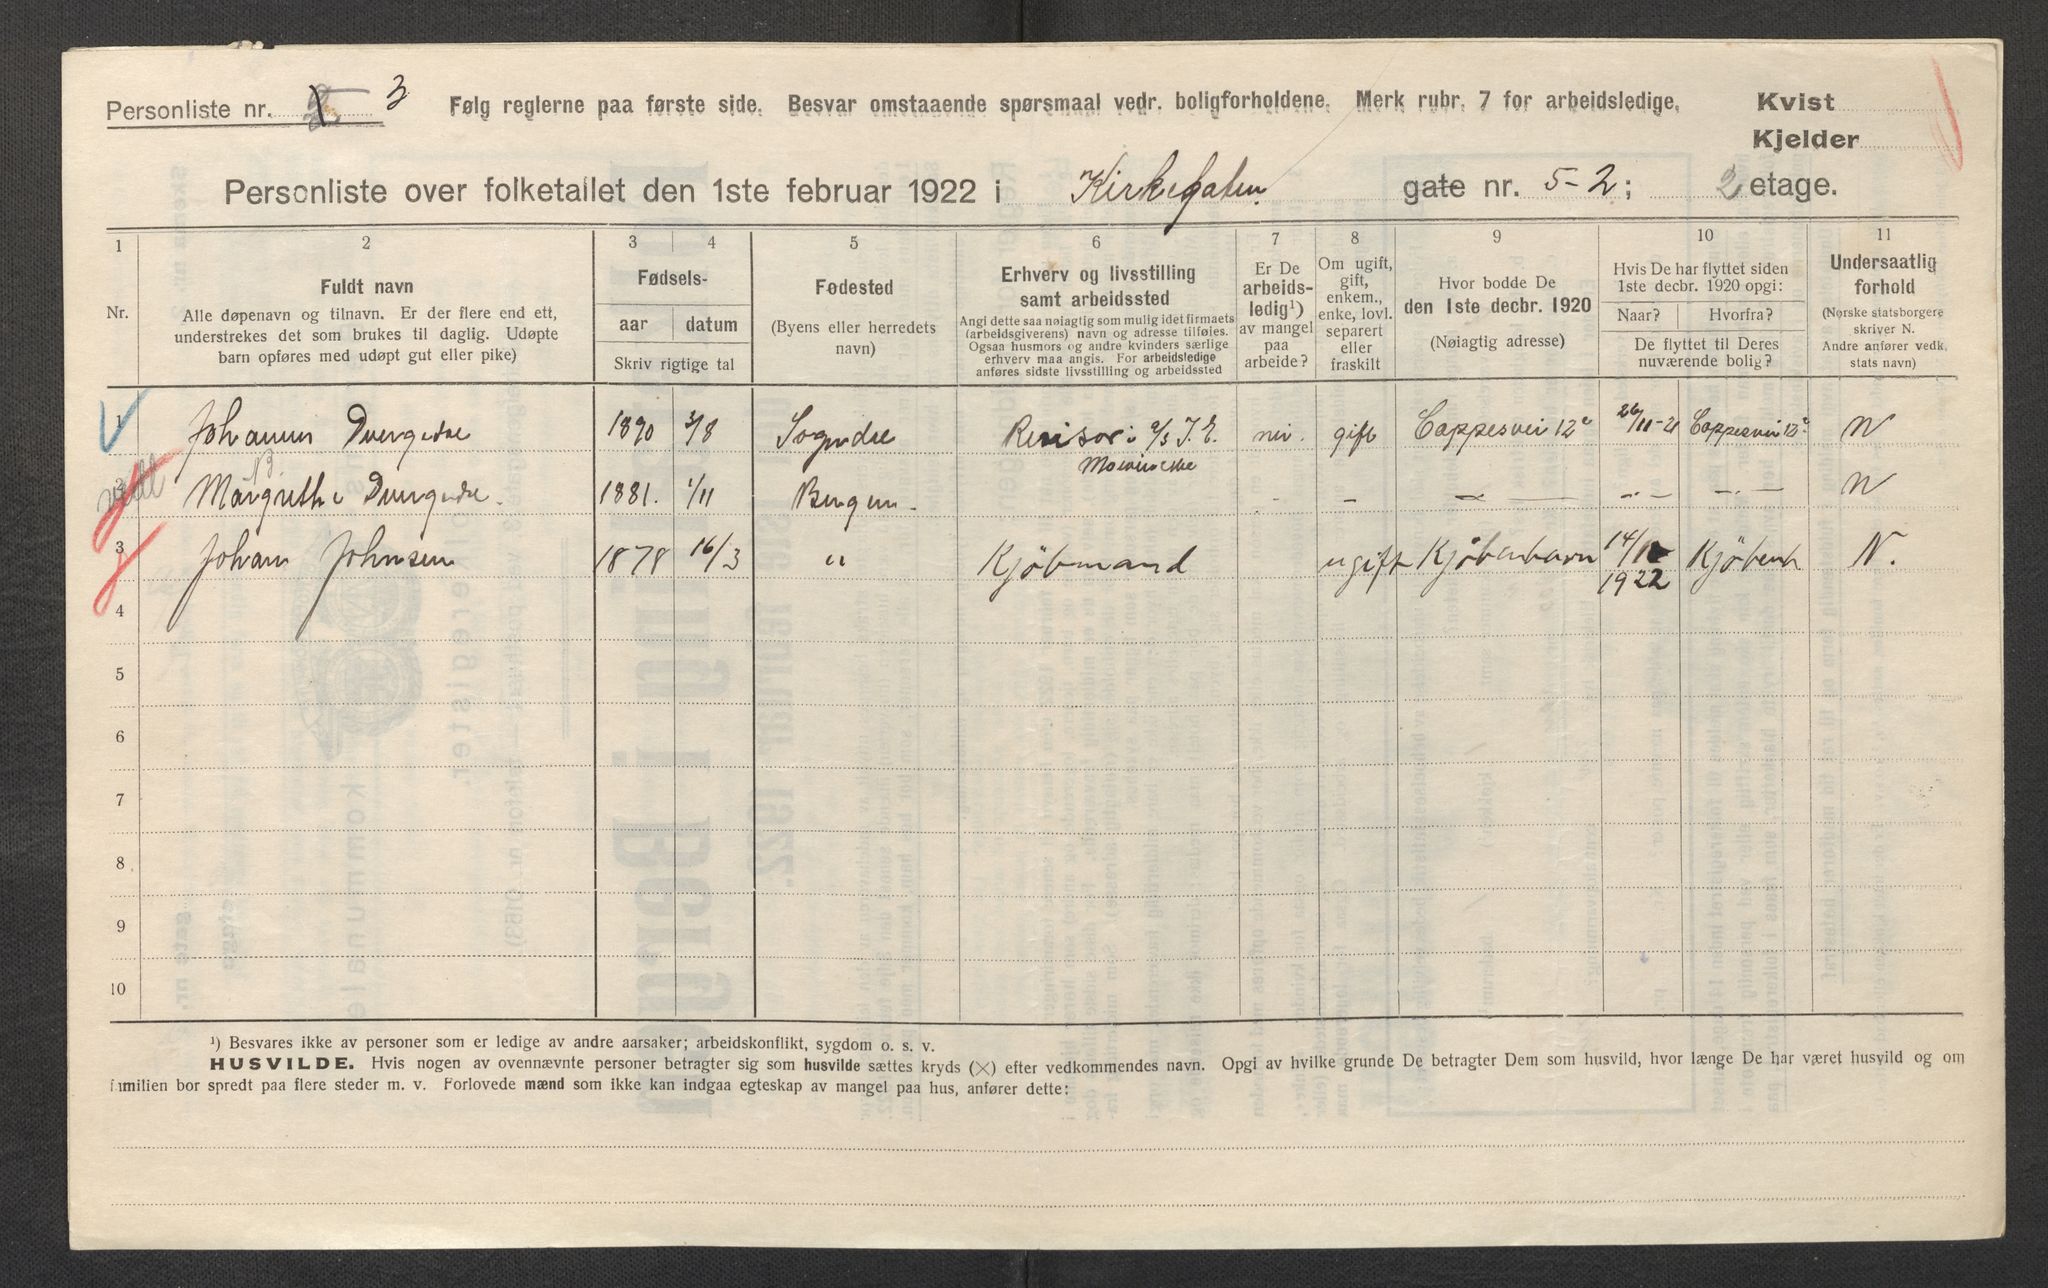 Personliste nr. 3 Følg reglerne paa første side. Besvar omstaaende spørsmaal vedr. boligforholdene. Merk rubr. 7 for arbeidsledige. Kvist
Kjelder
Personliste over folketallet den 1ste februar 1922 i Kirkegaten gate nr. 5-2; 2 etage.
1 2 3 4 5 6 7 8 9 10 11
Nr.
Fuldt navn
Alle døpenavn og tilnavn. Er der flere end ett,
understrekes det som brukes til daglig. Udøpte
barn opføres med udøpt gut eller pike)
Fødsels-
aar datum
Skriv rigtige tal
Fødested
(Byens eller herredets
navn)
Erhverv og livsstilling
samt arbeidssted
Angi dette saa nøiagtig som mulig idet firmaets
(arbeidsgiverens) navn og adresse tilføies.
Ogsaa husmors og andre kvinders særlige
erhverv maa angis. For arbeidsledige
anføres sidste livsstilling og arbeidssted
Er De
arbeids-
ledig¹)
av mangel
paa
arbeide?
Om ugift,
gift,
enkem.,
enke, lovl.
separert
eller
fraskilt
Hvor bodde De
den 1ste decbr. 1920
(Nøiagtig adresse)
Hvis De har flyttet siden
1ste decbr. 1920 opgi:
Naar? Hvorfra?
De flyttet til Deres
nuværende bolig?
Undersaatlig
forhold
(Norske statsborgere
skriver N.
Andre anfører vedk.
stats navn)
1 Johannes Dvergsdal 1890 3/8 Sogndal Revisor i a/s J. E. nei. gift Cappesvei 12a 26/11-21 Cappesvei 12a N
Mowinckel
2 Margrethe Dvergsdal. 1881. 1/11 Bergen - - - - - N
3 Johan Johnsen 1878 16/3 " Kjöbmand ugift Kjöbenhavn 14/1 Kjöbenh N.
1922
4
5
6
7
8
9
10
¹) Besvares ikke av personer som er ledige av andre aarsaker; arbeidskonflikt, sygdom o. s. v.
HUSVILDE. Hvis nogen av ovennævnte personer betragter sig som husvilde sættes kryds (×) efter vedkommendes navn. Opgi av hvilke grunde De betragter Dem som husvild, hvor længe De har været husvild og om
familien bor spredt paa flere steder m. v. Forlovede mænd som ikke kan indgaa egteskap av mangel paa hus, anfører dette: